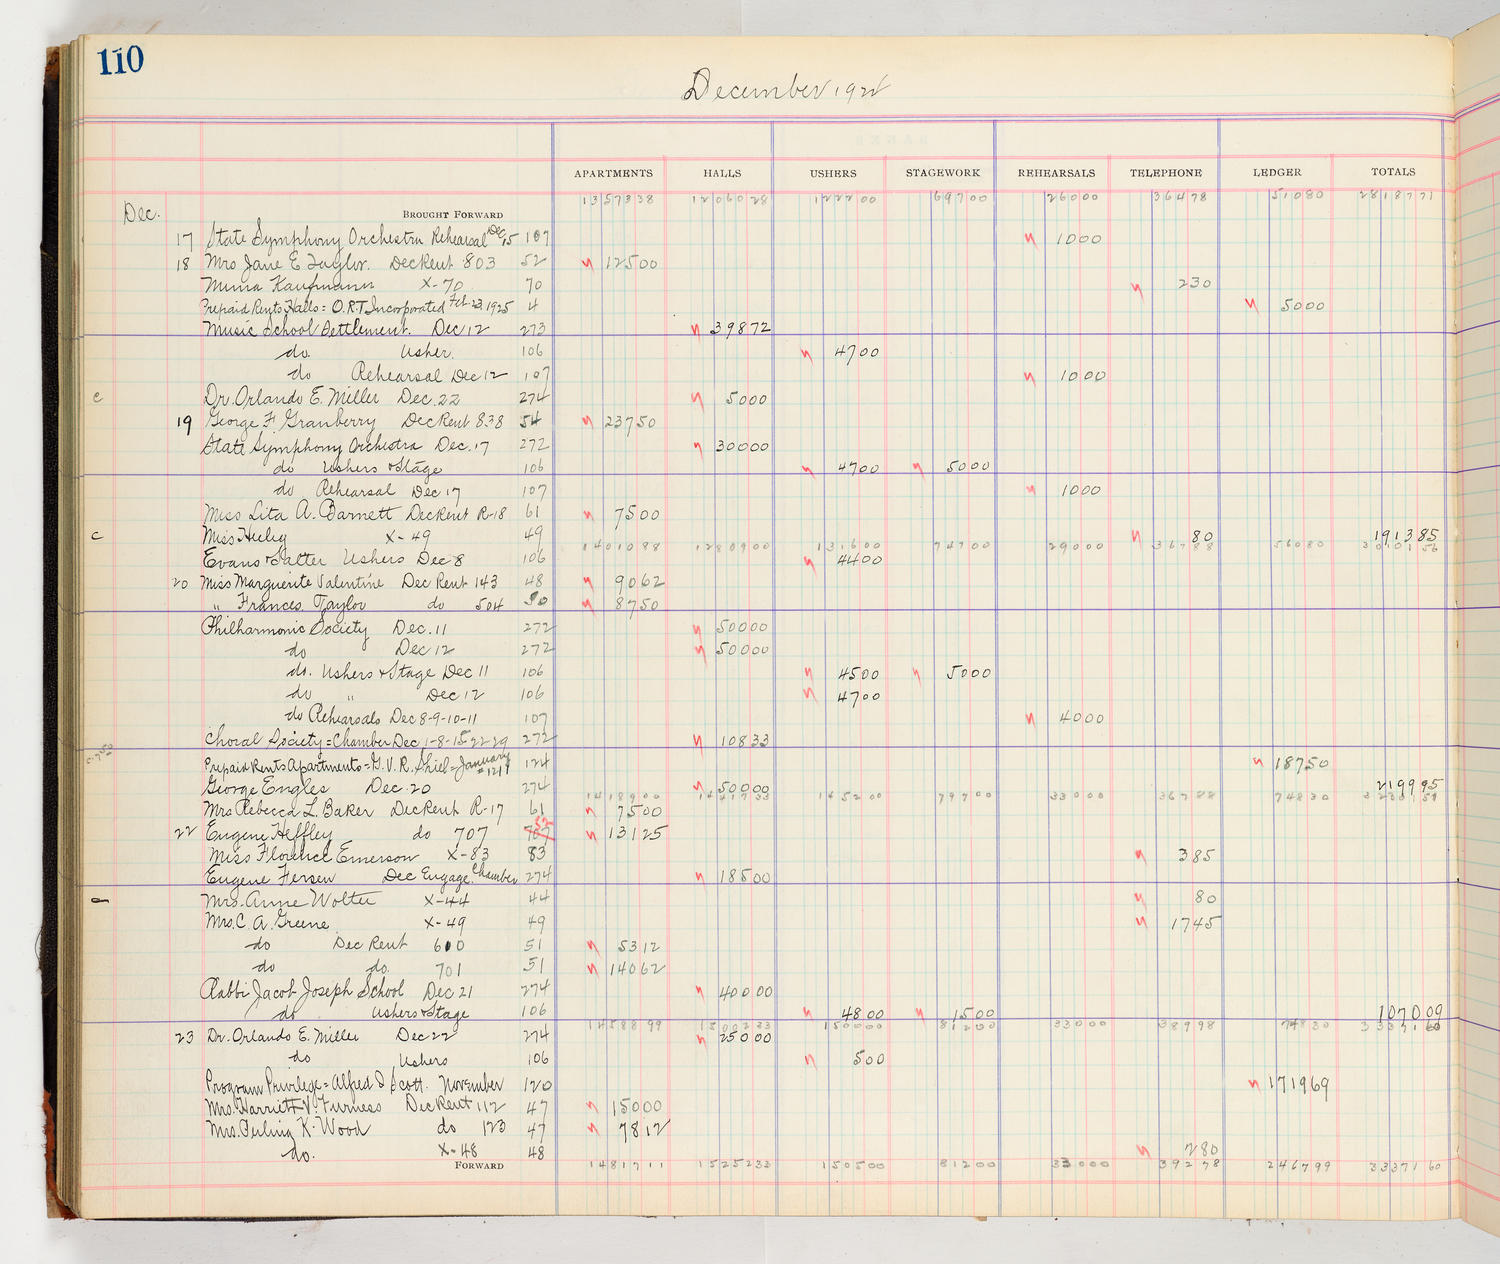 110
December 1924
APARTMENTS HALLS USHERS STAGEWORK REHEARSALS TELEPHONE LEDGER TOTALS
1357338 1206028 122200 69700 26000 36478 51080 2818771
Dec. BROUGHT FORWARD
17 State Symphony Orchestra Rehearsal Dec 15 107 1000
18 Mrs Jane E Taylor. Dec Rent 803 52 12500
Mina Kaufmann X-70 70 230
Prepaid Rents Halls = O.R.T Incorporated Feb. 23, 1925 4 5000
Music School Settlement. Dec 12 273 39872
do. Usher. 106 4700
do Rehearsal Dec 12 107 1000
c Dr. Orlando E. Miller Dec. 22 274 5000
19 George F. Granberry Dec Rent 838 54 23750
State Symphony Orchestra Dec. 17 272 30000
do Ushers + Stage 106 4700 5000
do Rehearsal Dec 17 107 1000
Miss Lita A. Barnett Dec Rent R-18 61 7500
c Miss X-49 49 80 191385
1401088 1280900 131600 74700 29000 36788 56080 3010156
Evans + Salter Ushers Dec 8 106 4400
20 Miss Marguerite Valentine Dec Rent 143 48 9062
" Frances Taylor do 504 50 8750
Philharmonic Society Dec. 11 272 50000
do Dec 12 272 50000
do. Ushers + Stage Dec 11 106 4500 5000
do " Dec 12 106 4700
do Rehearsals Dec 8-9-10-11 107 4000
Choral Society = Chamber Dec 1-8-15-22-29 272 10833
Prepaid Rents Apartments = G. V. R. Shiel = January #1211 124 18750
George Engles Dec. 20 274 50000 219995
1418900 1441733 145200 79700 33000 36788 74830 3230151
Mrs Rebecca L. Baker Dec Rent R-17 61 7500
22 Eugene Heffley do 707 52 13125
Miss Florence Emerson X-83 83 385
Eugene Fersen Dec Engage. Chamber 274 18500
Mrs. Anne Wolter X-44 44 80
Mrs. C. A. Greene X-49 49 1745
do Dec Rent 600 51 5312
do do. 701 51 14062
Rabbi Jacob Joseph School Dec 21 274 40000
do Ushers + Stage 106 4800 1500 107009
1458899 1500233 150000 81200 33000 38998 74830 3337160
23 Dr. Orlando E. Miller Dec 22 274 25000
do Ushers 106 500
Program Privilege = Alfred D Scott. November 120 171969
Mrs. Harriett V. Furness Dec Rent 112 47 15000
Mrs. K. Wood do 123 47 7812
do. X-48 48 280
FORWARD 1481711 1525233 150500 81200 33000 39278 246799 3337160